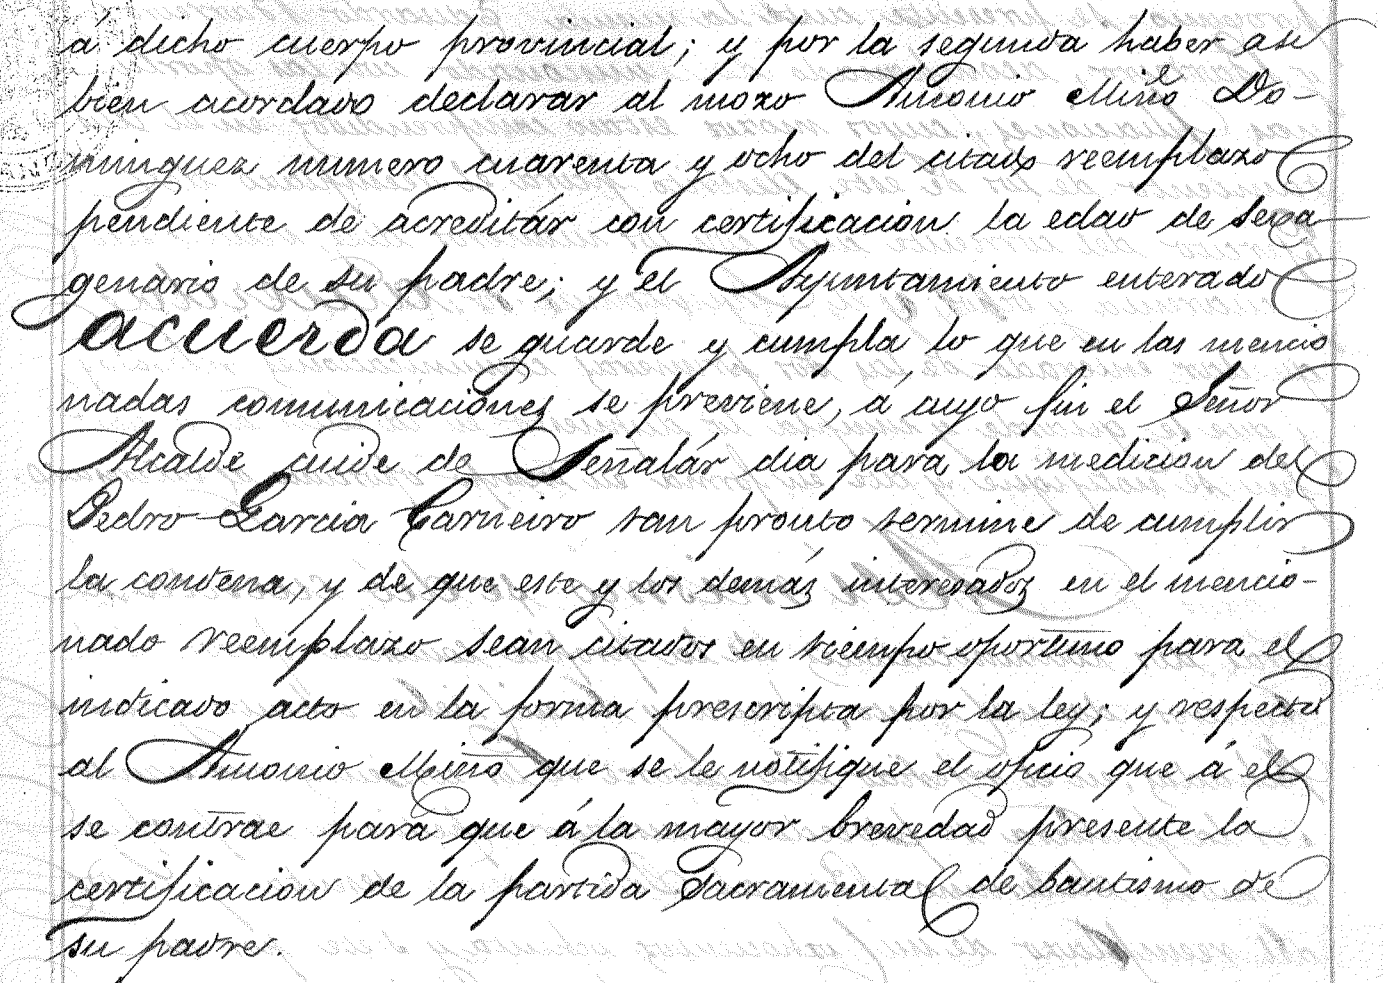 á dicho cuerpo provincial; y por la segunda haber asi
bien acordado declarar al mozo Antonio Miño Do-
minguez numero cuarenta y ocho del citado reemplazo
pendiente de acreditár con certificacion la edad de sexa
genario de su padre; y el Ayuntamiento enterado
acuerda se guarde y cumpla lo que en las mencio
nadas comunicaciónes se previene, á cuyo fin el Señor
Alcalde cuide de Señalár dia para la medicion del
Pedro Garcia Carneiro tan pronto termine de cumplir
la condena, y de que este y los demás interesados en el mencio-
nado reemplazo sean citados en tiempo oportuno para el
indicado acto en la forma prescripta por la ley; y respecto
al Antonio Miño que se le notifique el oficio que á el
se contrae para que á la mayor brevedad presente la
certificacion de la partida Sacramental de bautismo de
su padre.